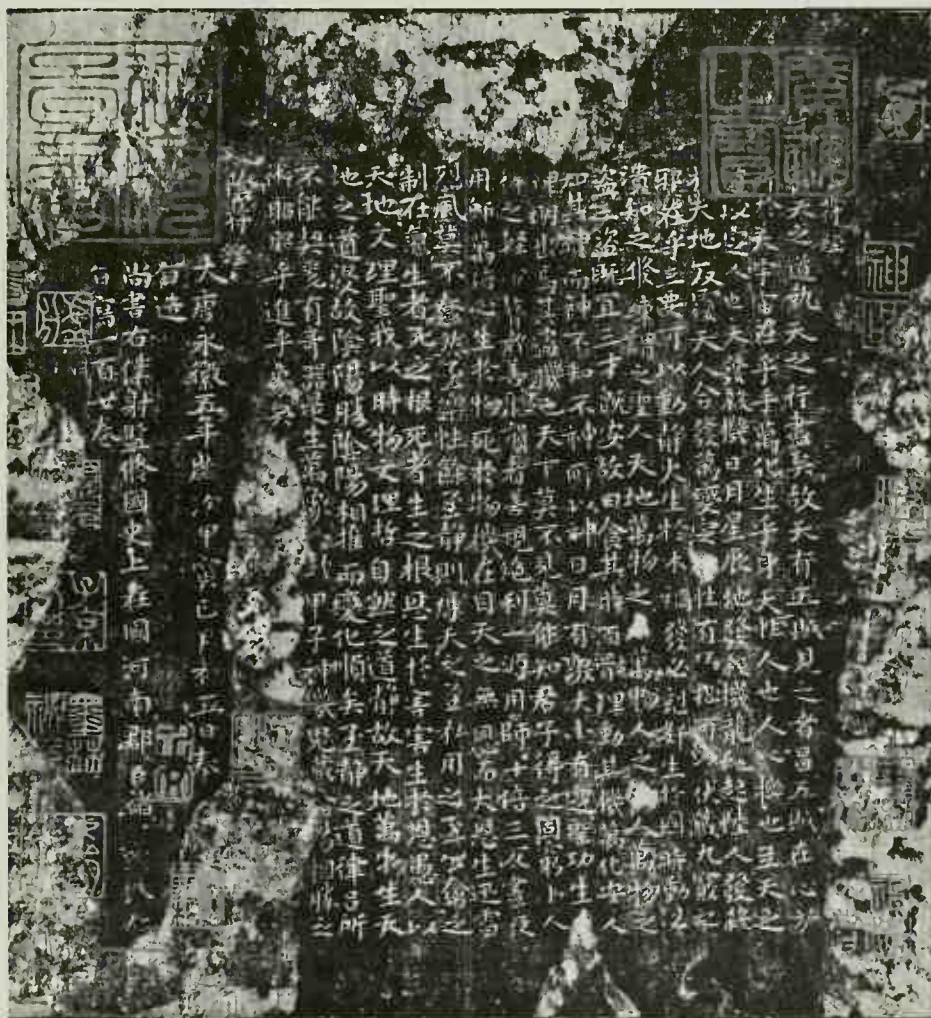 天之道執天之行盡矣故天有五賊見之者昌五賊在心
天宇宙在乎手萬化生乎身天性人也人心機也立天之
以定人也天發殺機日月星辰地發殺機龍蛇起陸人發殺
機天地反覆天人合發萬變定基性有巧拙可以伏藏九竅之
邪在乎三要可以動靜火生於木禍發必剋奸生於國時動必
潰知之修煉謂之聖人天地萬物之盜萬物人之盜人萬物之
盜三盜既宜三才既安故曰食其時百骸理動其機萬化安人
知其神而神不知不神而所以神日月有數大小有定聖功生
神明出焉其盜機也天下莫不見莫能知君子得之固躬小人
得之輕命瞽者善聽聾者善視絕利一源用師十倍三反晝夜
用師萬倍心生於物死於物機在目天之無恩而大恩生迅雷
烈風莫不蠢然至樂性餘至靜則廉天之至私用之至公禽之
制在氣生者死之根死者生之根恩生於害害生於恩愚人以
天地文理聖我以時物文理哲自然之道靜故天地萬物生天
地之道浸故陰陽勝陰陽相推而變化順矣至靜之道律呂所
不能契爰有奇器是生萬象八卦甲子神機鬼藏陰陽相勝之
術昭昭乎進乎象矣
陰符經
大唐永徽五年歲次甲寅 五日奉
旨造
尚書右僕射監修國史上柱國河南郡 臣
旨寫一百 卷